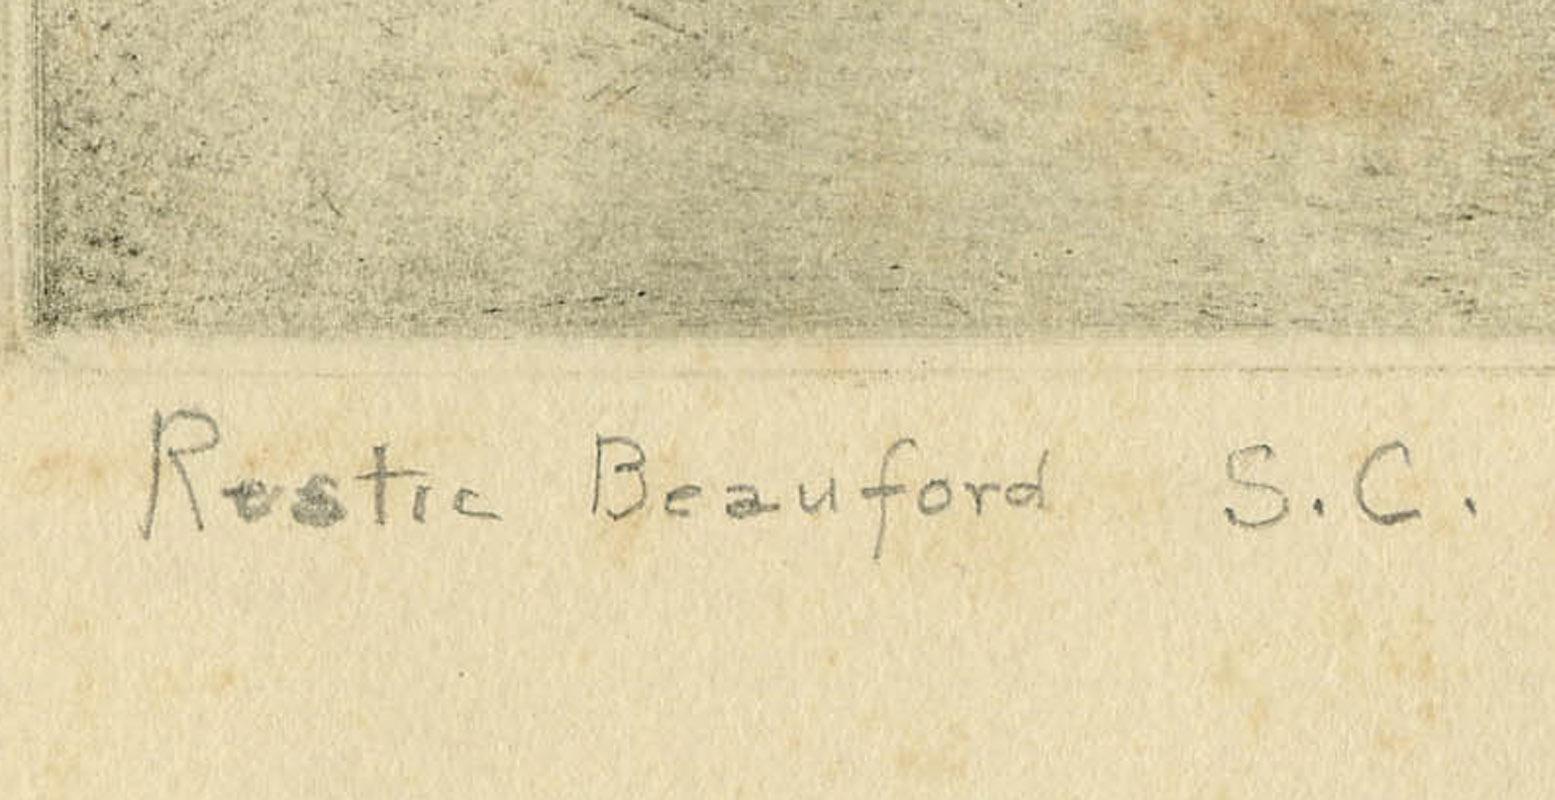 Rustic Beauford S.C.